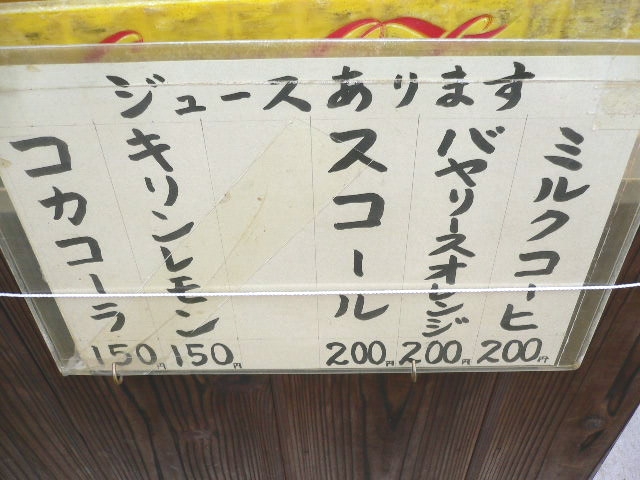 ジュースあります
ミルクコーヒ
200円
バヤリースオレンジ
200円
スコール
200円
キリンレモン
150円
コカコーラ
150円